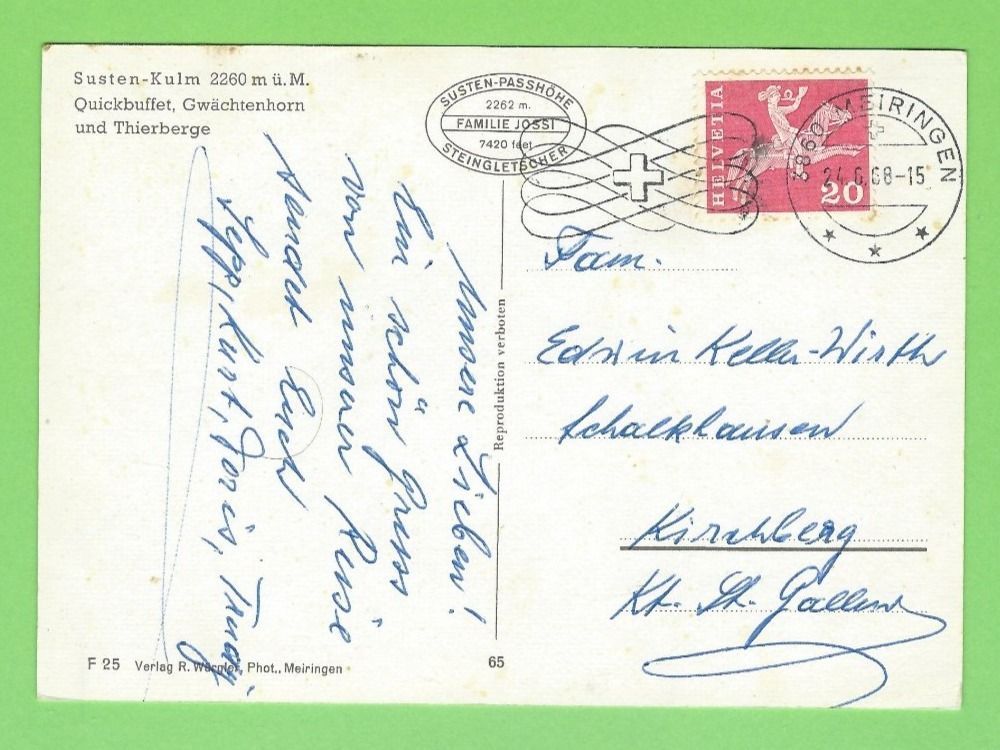 Susten-Kulm 2260 m ü. M.
Quickbuffet, Gwächtenhorn
und Thierberge
SUSTEN-PASSHÖHE
2262 m.
FAMILIE JOSSI
7420 feet
STEINGLETSCHER
HELVETIA
20
3860 MEIRINGEN
24.6.68-15
Unsere Lieben!
Ein schön Gruss
von unserer Reise
sendet Euch
Sepp, Kurt, Doris, Trudy
Reproduktion verboten
Fam.
Edwin Keller-Wirth
Schalkhausen
Kirchberg
Kt. St. Gallen
F 25 Verlag R. Würgler, Phot., Meiringen
65